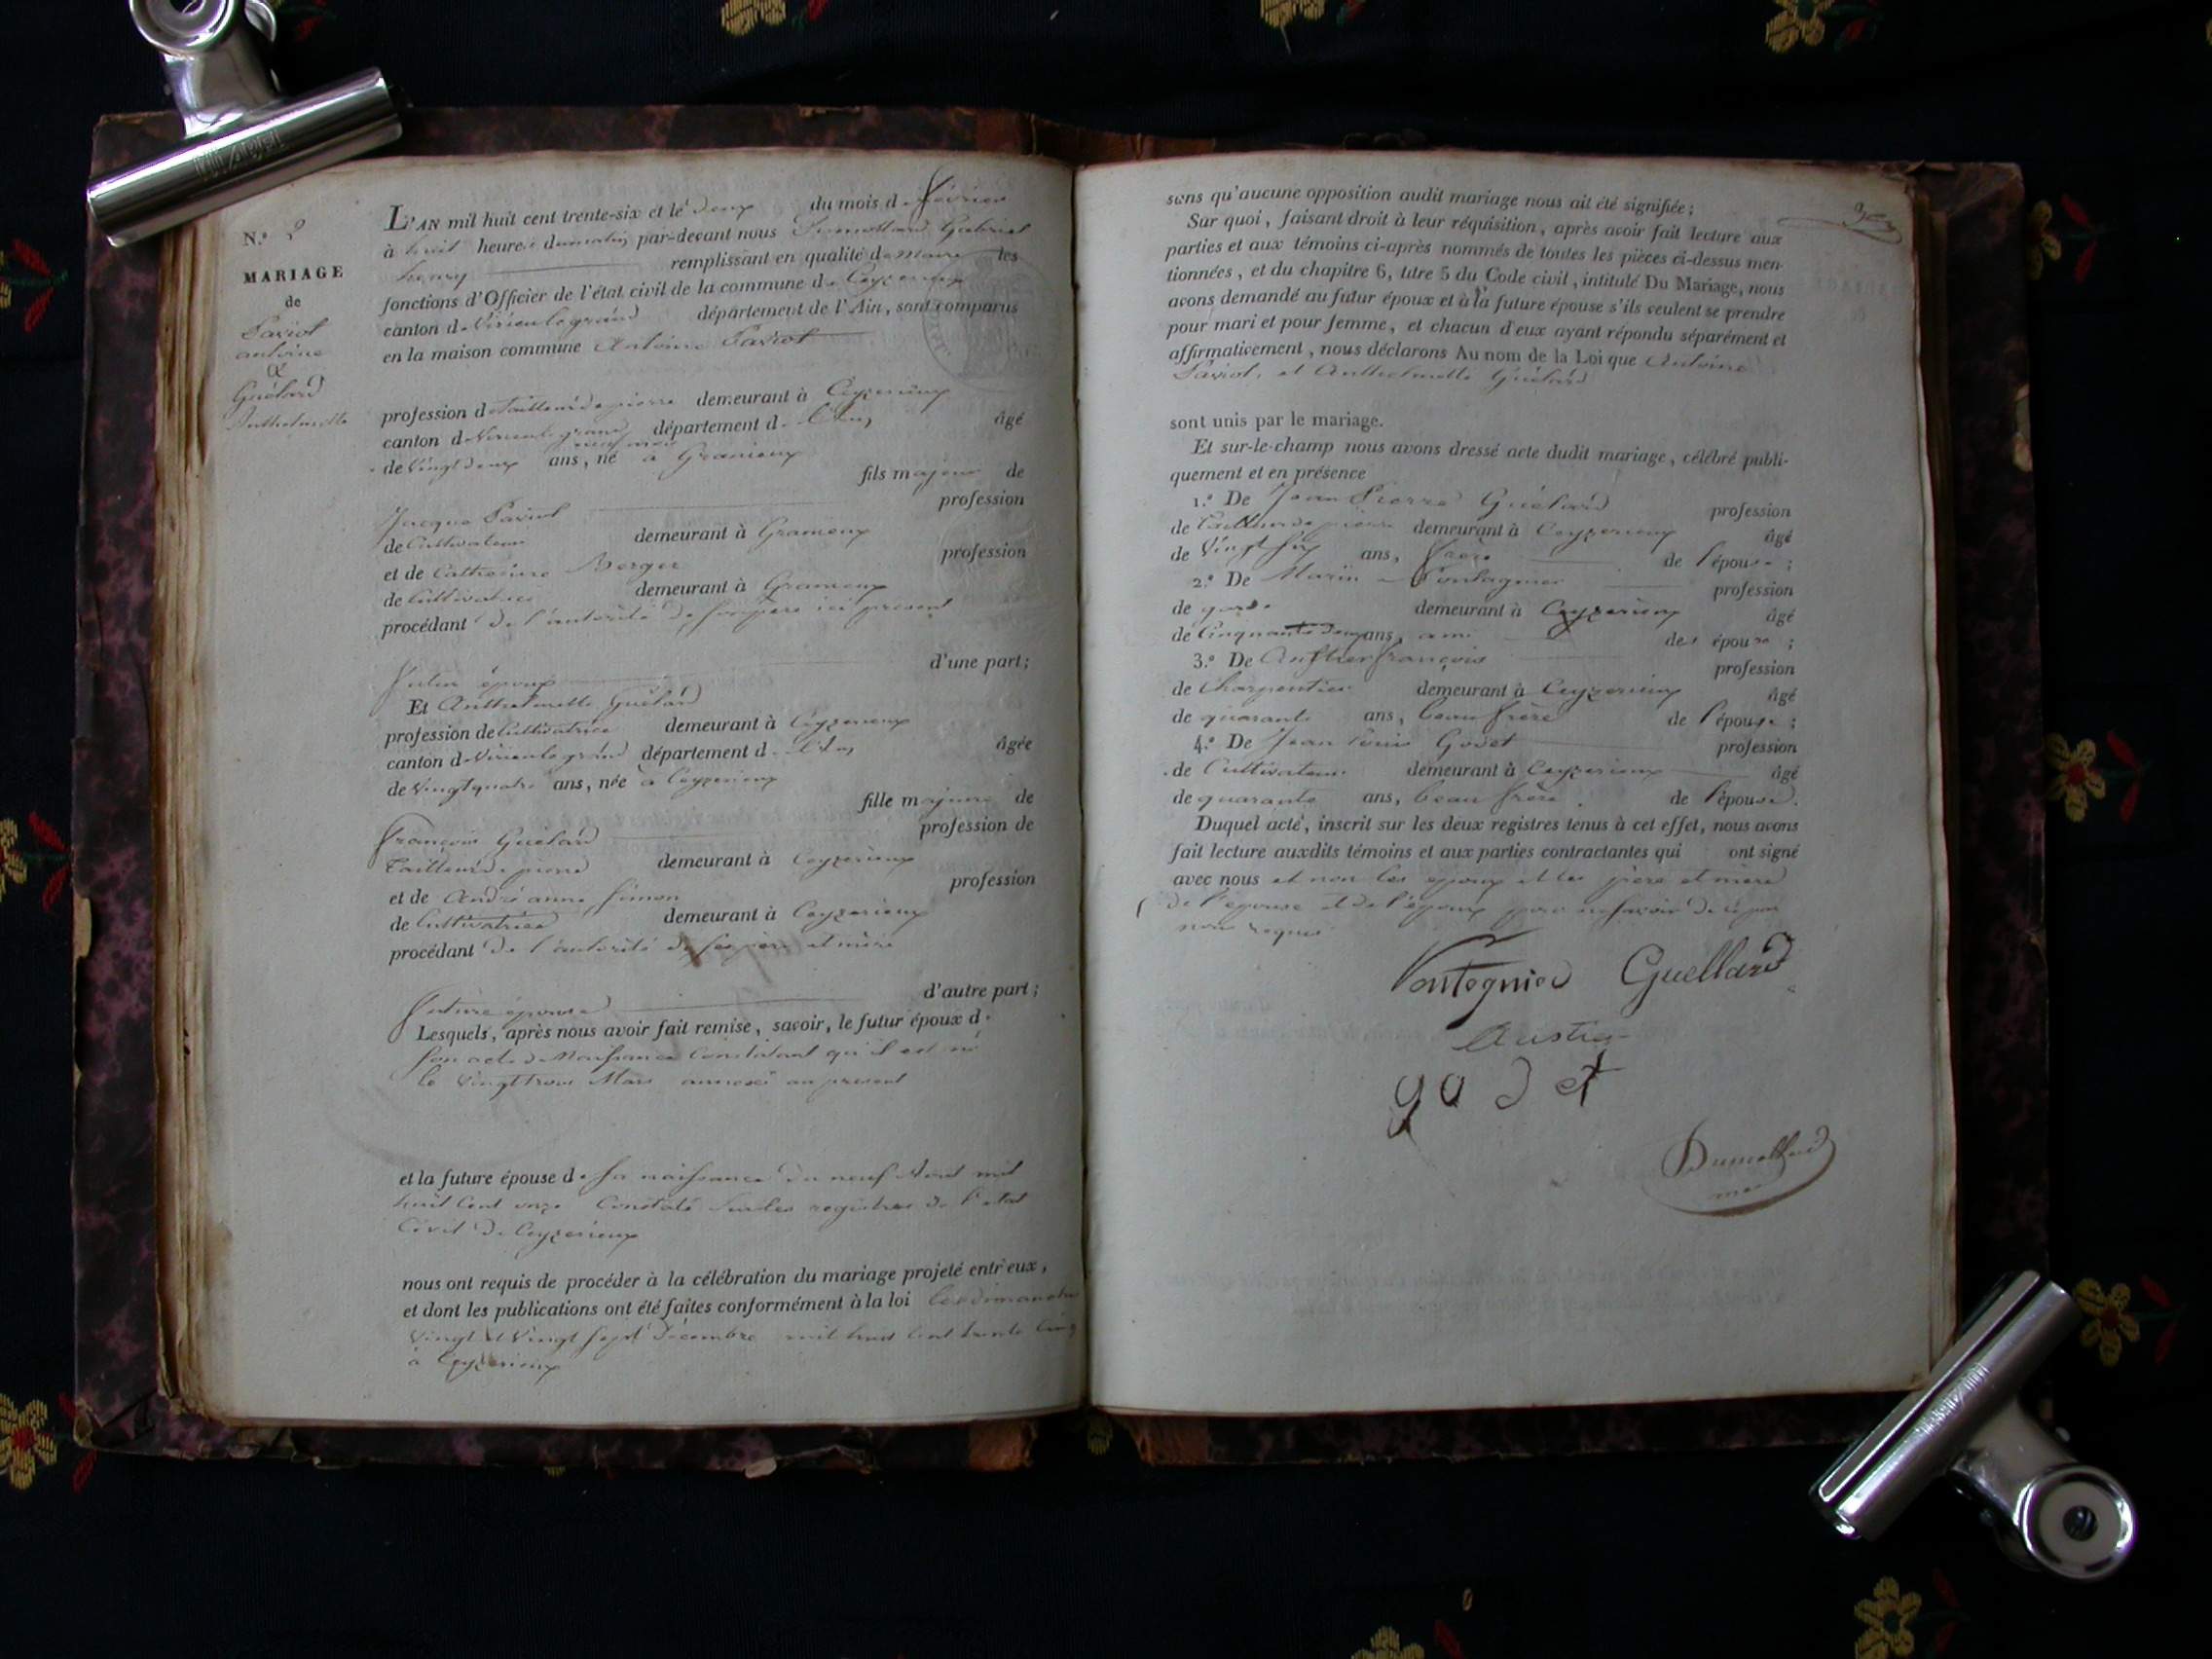 N.º 2
MARIAGE
de
Paviot
antoine
&
Guélard
Anthelmette
L'AN mil huit cent trente-six et le deux du mois d février
à huit heures du matin par-devant nous Dumollard Gabriel
henry remplissant en qualité de Maire les
fonctions d'Officier de l'état civil de la commune de Ceyzerieux
canton de Virieu le grand département de l'Ain, sont comparus
en la maison commune Antoine Paviot
profession de tailleur de pierre demeurant à Ceyzerieux
canton de Virieu le grand département de l'Ain, âgé
neuf mois
de vingt deux ans, né à Gramieux
fils majeur de
Jacque Paviot profession
de Cultivateur demeurant à Gramieux
et de Catherine Berger profession
de Cultivatrice demeurant à Gramieux
procédant de l'autorité de son père ici présent
futur époux d'une part;
Et Anthelmette Guélard
profession de Cultivatrice demeurant à Ceyzerieux
canton de Virieu le grand département de l'Ain, âgée
de vingt quatre ans, née à Ceyzerieux
fille majeure de
François Guélard profession de
Tailleur de pierre demeurant à Ceyzerieux
et de André anne Simon profession
de Cultivatrice demeurant à Ceyzerieux
procédant de l'autorité de ses père et mère
future épouse d'autre part;
Lesquels, après nous avoir fait remise, savoir, le futur époux d
son acte de Naissance Constatant qu'il est né
le vingt trois Mars annexé au présent
et la future épouse de sa naissance du neuf Aout mil
huit Cent onze Constaté sur les registres de l'état
Civil de Ceyzerieux
nous ont requis de procéder à la célébration du mariage projeté entr'eux,
et dont les publications ont été faites conformément à la loi les dimanches
vingt et vingt sept Décembre mil huit Cent trente Cinq
à Ceyzerieux
sans qu'aucune opposition audit mariage nous ait été signifiée;
Sur quoi, faisant droit à leur réquisition, après avoir fait lecture aux
parties et aux témoins ci-après nommés de toutes les pièces ci-dessus men-
tionnées, et du chapitre 6, titre 5 du Code civil, intitulé Du Mariage, nous
avons demandé au futur époux et à la future épouse s'ils veulent se prendre
pour mari et pour femme, et chacun d'eux ayant répondu séparément et
affirmativement, nous déclarons Au nom de la Loi que Antoine
Paviot, et Anthelmette Guélard
sont unis par le mariage.
Et sur-le-champ nous avons dressé acte dudit mariage, célébré publi-
quement et en présence
1.º De Jean Pierre Guélard profession
de tailleur de pierre demeurant à Ceyzerieux âgé
de vingt six ans, frère de l'épouse;
2.º De Marin Pontagnier profession
de garde demeurant à Ceyzerieux âgé
de Cinquante deux ans, ami des époux;
3.º De Austier françois profession
de Charpentier demeurant à Ceyzerieux âgé
de quarante ans, beau frère de l'épouse;
4.º De Jean Louis Godet profession
de Cultivateur demeurant à Ceyzerieux âgé
de quarante ans, beau frère de l'épouse.
Duquel acte, inscrit sur les deux registres tenus à cet effet, nous avons
fait lecture auxdits témoins et aux parties contractantes qui ont signé
avec nous et non les epoux et les père et mère
de l'épouse et de l'époux pour ne savoir de ce par
nous requis
Pontognier Guellard
Austier
godet
Dumollard